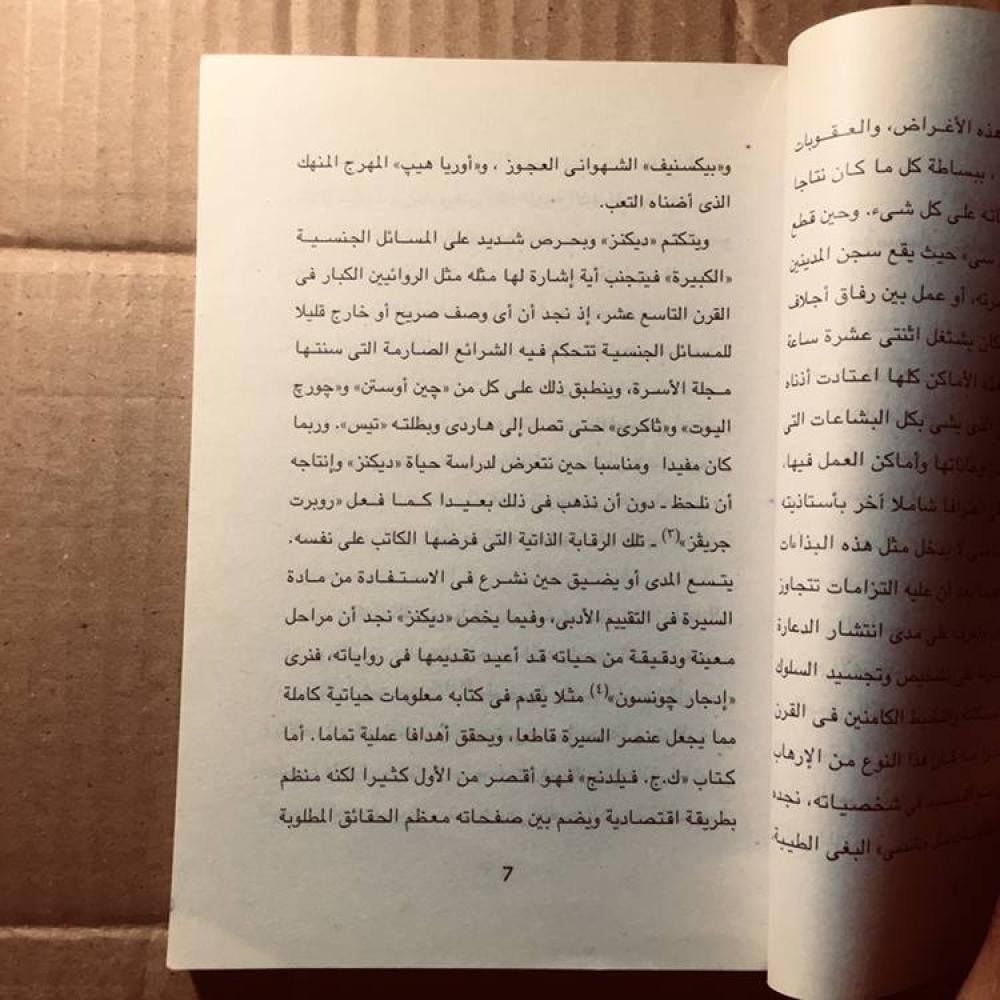 هذه الأغراض، والعقوبات
، ببساطة كل ما كان نتاجا
على كل شىء. وحين قطع
حيث يقع سجن المدينين
أو عمل بين رفاق أجلاف
كان يشتغل اثنتى عشرة ساعة
الأماكن كلها اعتادت أذناه
يشى بكل البشاعات التى
وأماكن العمل فيها،
شاملا آخر بأستاذيته
يدخل مثل هذه البذاءات
أن عليه التزامات تتجاوز
مدى انتشار الدعارة
تشخيص وتجسيد السلوك
الكامنين فى القرن
ما كان هذا النوع من الإرهاب
فى شخصياته، نجده
البغى الطيبة،
و«بيكسنيف» الشهوانى العجوز ، و«أوريا هيپ» المهرج المنهك
الذى أضناه التعب.
ويتكتم «ديكنز» وبحرص شديد على المسائل الجنسية
«الكبيرة» فيتجنب أية إشارة لها مثله مثل الروائيين الكبار فى
القرن التاسع عشر، إذ نجد أن أى وصف صريح أو خارج قليلا
للمسائل الجنسية تتحكم فيه الشرائع الصارمة التى سنتها
مجلة الأسرة، وينطبق ذلك على كل من «چين أوستن» و«چورچ
اليوت» و«ثاكرى» حتى تصل إلى هاردى وبطلته «تيس». وربما
كان مفيدا ومناسبا حين نتعرض لدراسة حياة «ديكنز» وإنتاجه
أن نلحظ ـ دون أن نذهب فى ذلك بعيدا كما فعل «روبرت
جريڤز»(٣) ـ تلك الرقابة الذاتية التى فرضها الكاتب على نفسه.
يتسع المدى أو يضيق حين نشرع فى الاستفادة من مادة
السيرة فى التقييم الأدبى، وفيما يخص «ديكنز» نجد أن مراحل
معينة ودقيقة من حياته قد أعيد تقديمها فى رواياته، فنرى
«إدجار چونسون»(٤) مثلا يقدم فى كتابه معلومات حياتية كاملة
مما يجعل عنصر السيرة قاطعا، ويحقق أهدافا عملية تماما. أما
كتاب «ك.ج. فيلدنج» فهو أقصر من الأول كثيرا لكنه منظم
بطريقة اقتصادية ويضم بين صفحاته معظم الحقائق المطلوبة
7